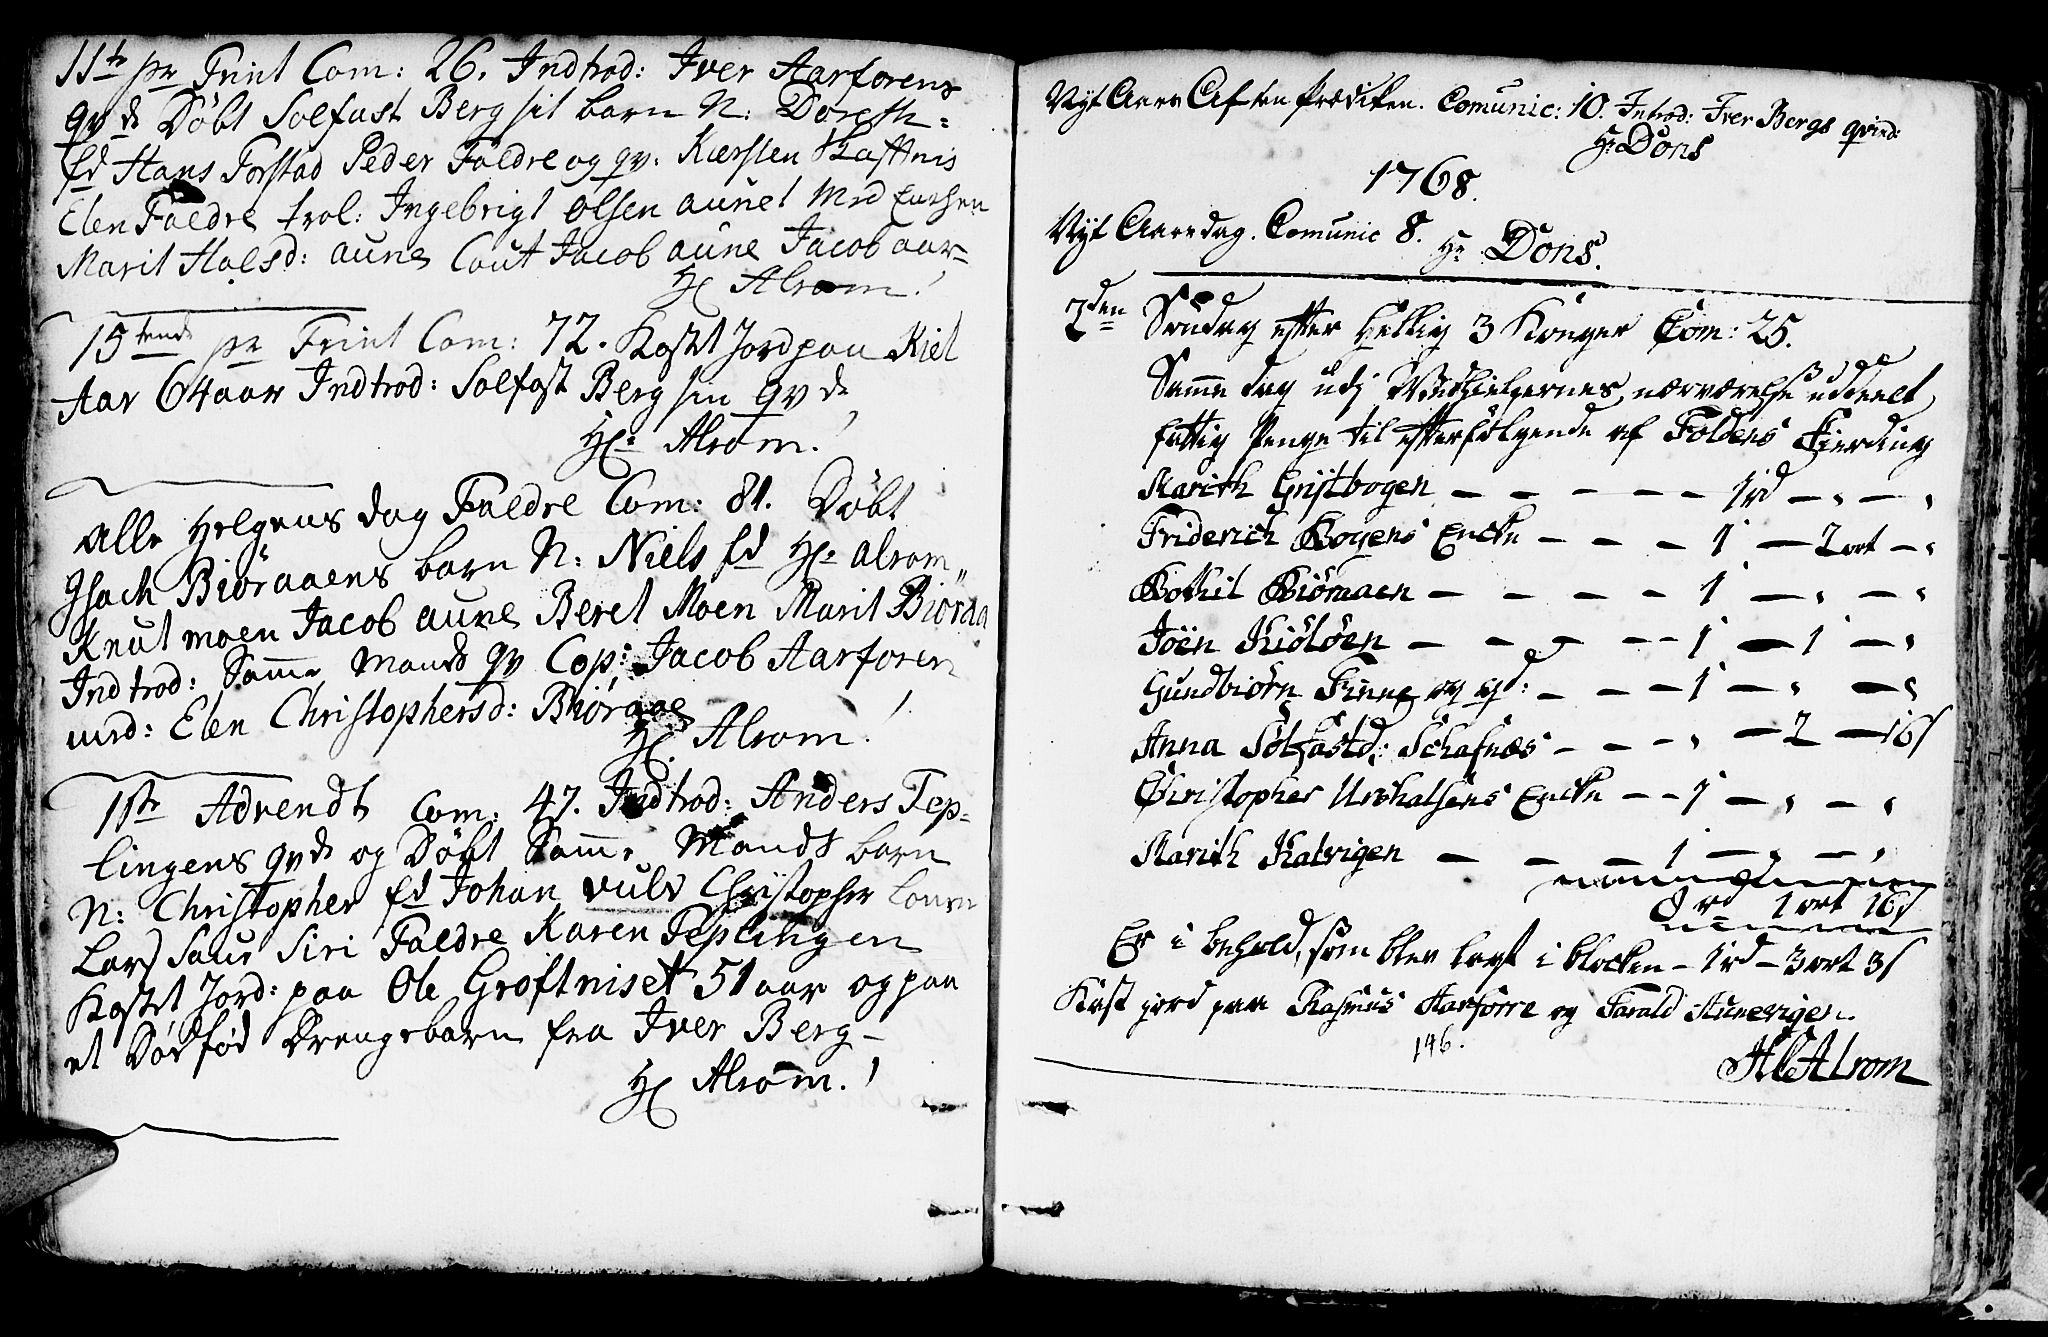 11te pr Trint Com: 26. Indtrod: Iver Aarforens
qvde Döbt Solfast Berg sit barn N: Doreth=
fd Hans Forstad Peder Faldre og qv: Kiersten Kaftnis
Elen Faldre trol: Ingebrigt Olsen aunet
Marit Halsd: aune Caut Jacob aune Jacob aar=
H Alrom!
15tende pr Trint Com: 72. Kastet Jord paa Kiel
Aar 64 aar Indtrod: Solfast Berg sin qvde
Hr Alrom!
Alle Helgens dag Faldre Com: 81. Döbt
Isach Biöraaens barn N: Niels fd Hr alrom
Knut moen Jacob aune Beret Moen Marit Biöraa
Indtrod: Samme Mands qv Cop: Jacob Aarforen
med: Elen Christophersd: Biöraae
H Alrom!
1ste Advendt Com: 47. Indtrod: Anders Tep=
lingens qvde og Döbt Samme Mands barn
N: Christopher fd Johan vulv Christopher
Lars Saur Siri Faldre Karen Teplingen
Kastet Jord: paa Ole Gröftniset 51 aar og paa
et Dödfød Drengebarn fra Iver Berg
H Alrom!
Nyt Aars Aften Prædiken. Comunic: 10. Introd: Iver Bergs qvind:
Hr Dons
1768.
Nyt Aarsdag. Comunic 8. Hr Dons.
2den Søndag efter Hellig 3 Konger Com: 25.
Samme dag udj Medhielpernes nærværelse uddeelt
fattig Penge til efterfølgende af Foldens Fierding
Marith Grystbogen — — — — — 1rd — „ — „
Friderich Bogens Encke — — — 1 — 2ort — „
Bothil Biöraaen — — — — 1 — „ — „
Joen Kiölöen — — — — 1 — 1 — „
Gundbiörn Finne og qd: — — — 1 — „ — „
Anna Solfastd: Schafnæs — — — „ — 2 — 16s
Christopher Urshalsens Encke — — 1 — „ — „
Marith Kalvigen — — — 1 — „ — „
8rd 1ort 16s
Er i behold, som blev lagt i blocken — 1rd — 3ort 3s
Kast jord paa Rasmus Aarforre og Farald Aunevigen.
146.
HC Alrom